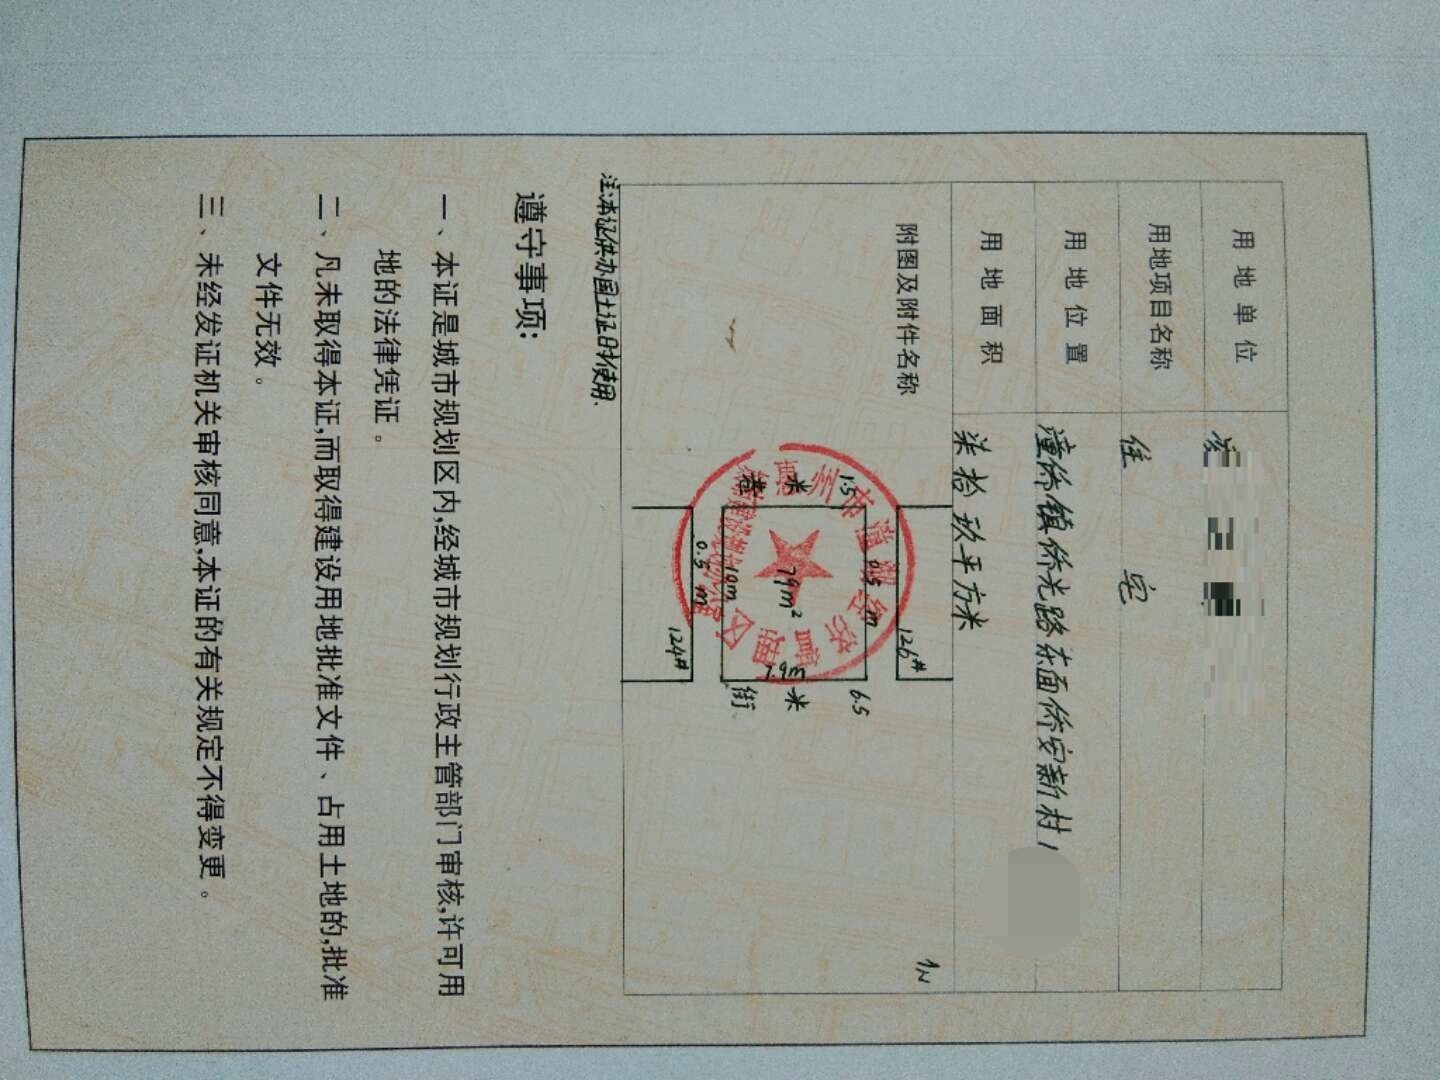 用地单位
用地项目名称 住宅
用地位置 潼侨镇侨光路东面侨安新村1
用地面积 柒拾玖平方米
附图及附件名称
N
126#
1.5
米
巷
0.5m
6.5
米
街
79m²
7.9m
10m
0.5m
124#
注:本证供办国土证时使用.
遵守事项:
一、本证是城市规划区内,经城市规划行政主管部门审核,许可用
地的法律凭证。
二、凡未取得本证,而取得建设用地批准文件、占用土地的,批准
文件无效。
三、未经发证机关审核同意,本证的有关规定不得变更。